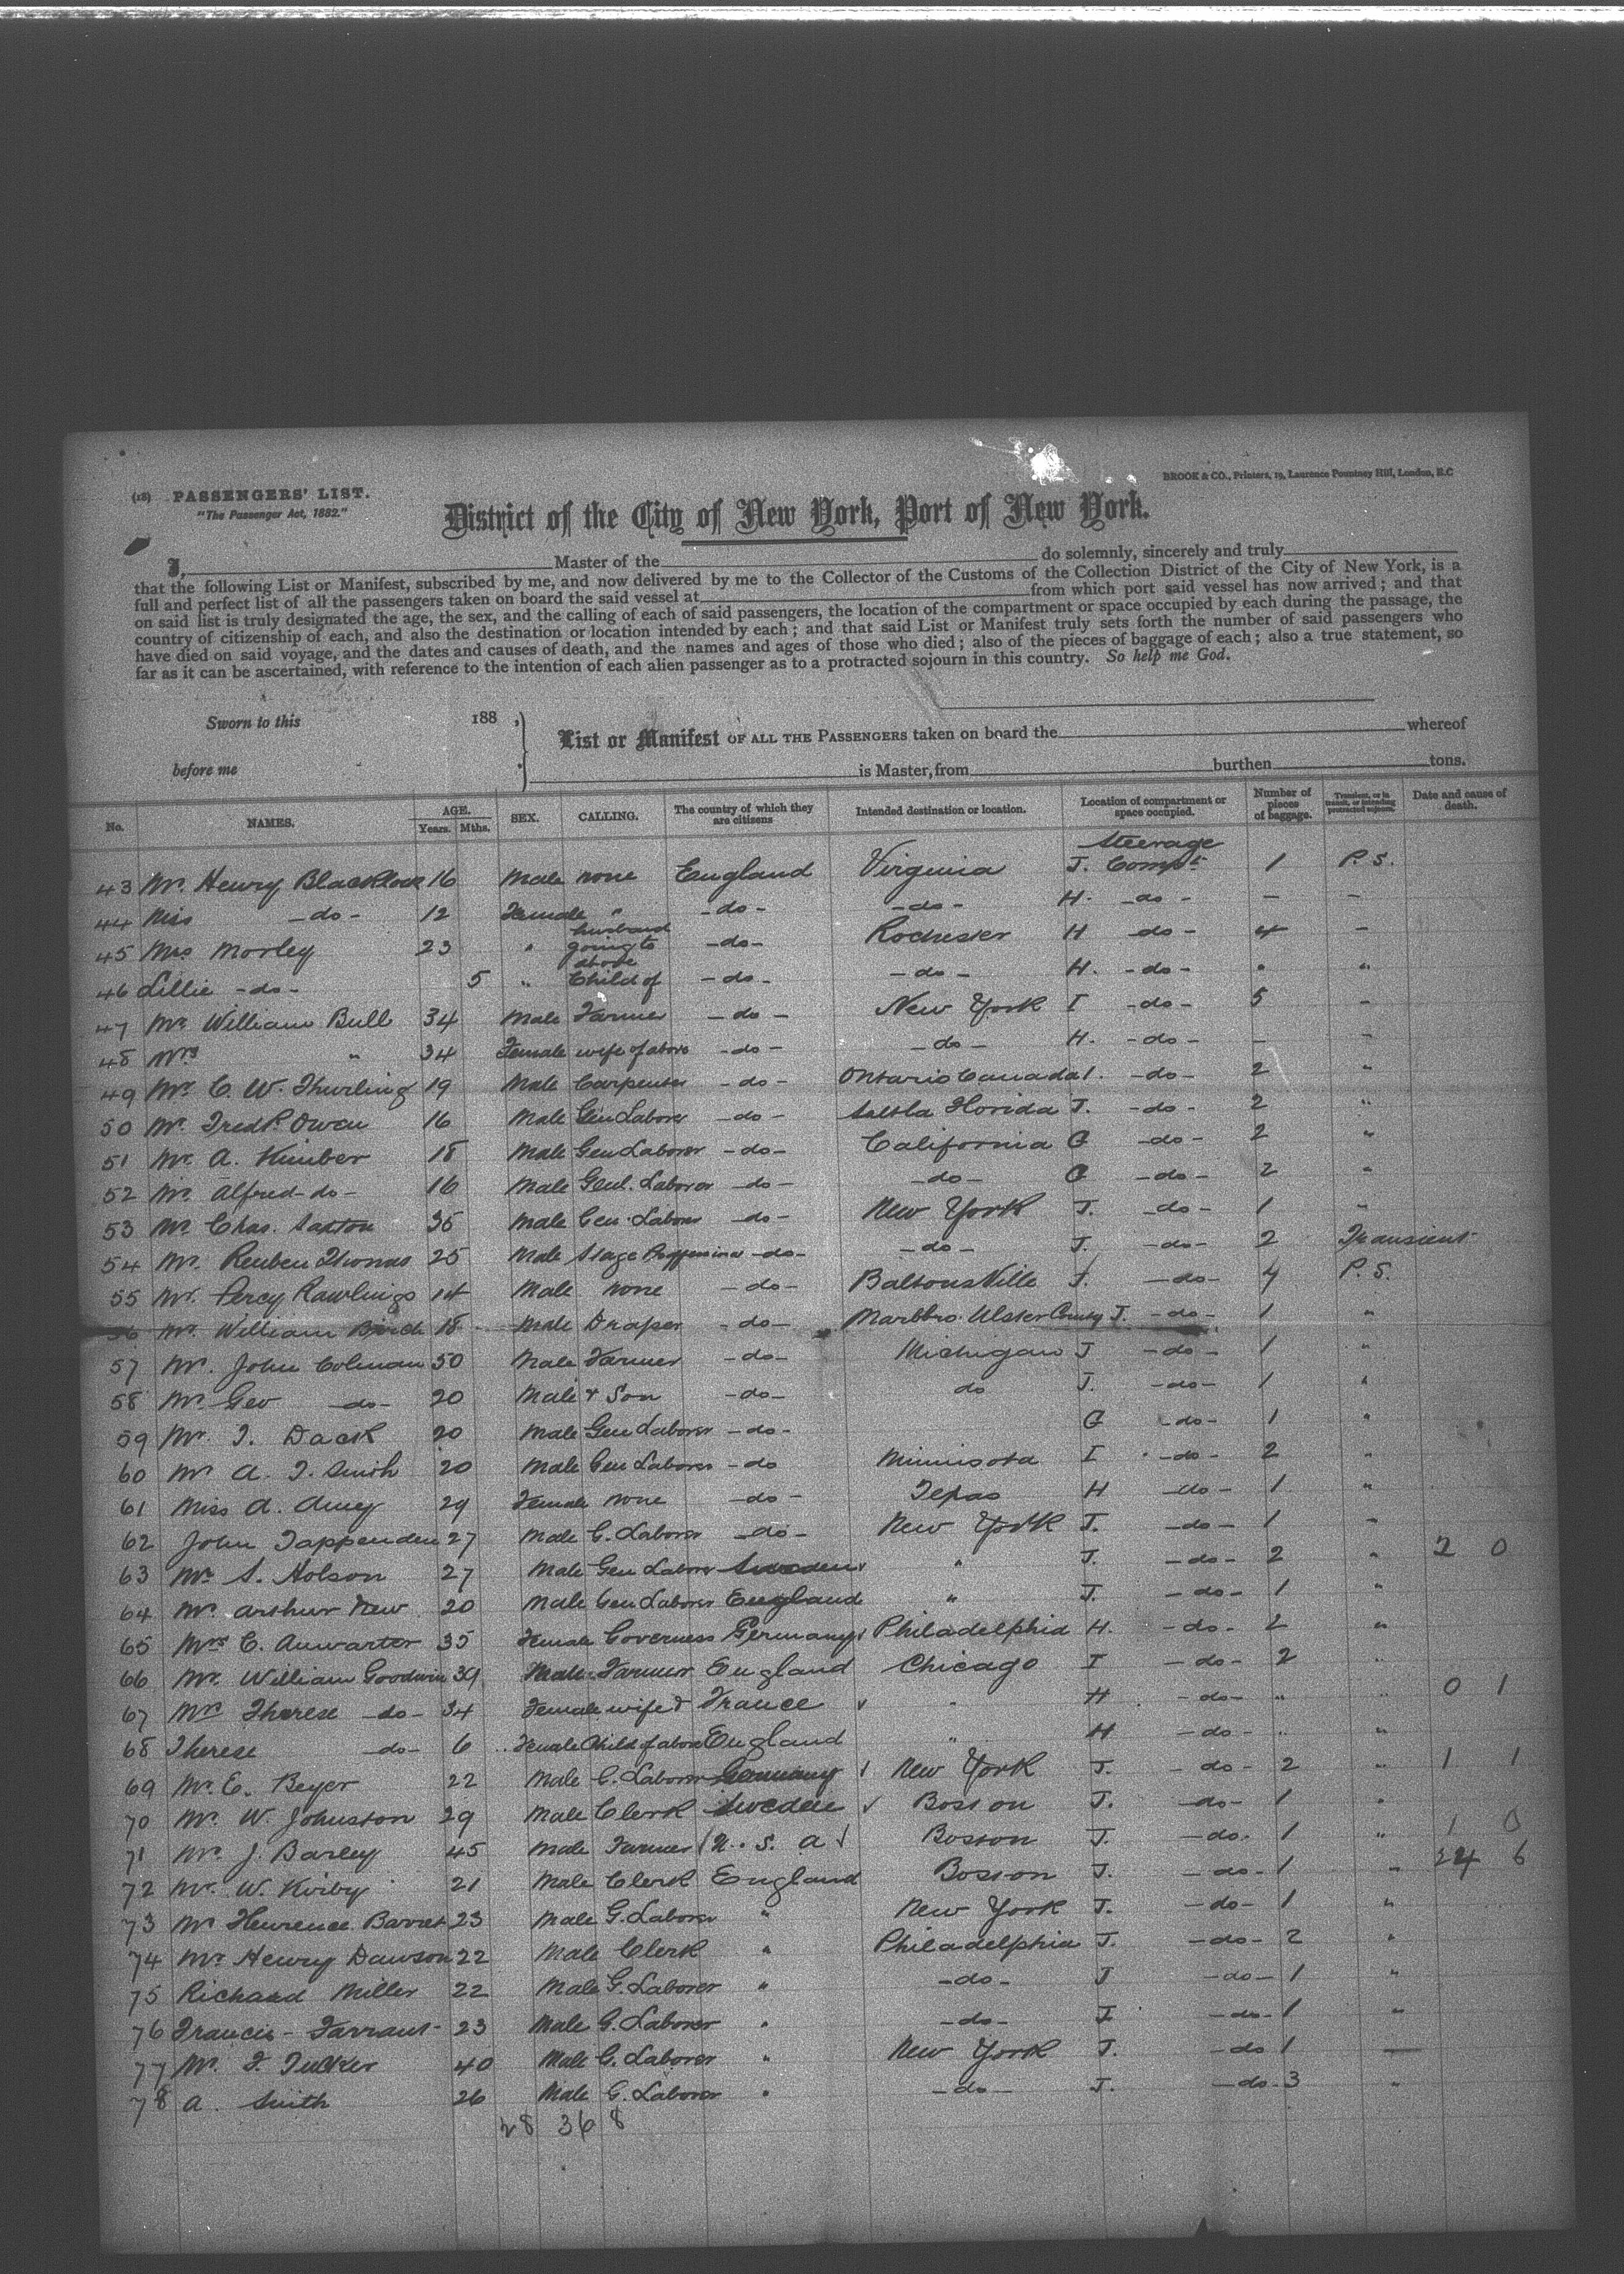 (18) PASSENGERS' LIST.
"The Passenger Act, 1882."
BROOK & CO., Printers, 19, Laurence Pountney Hill, London, E.C
District of the City of New York, Port of New York.
I, Master of the do solemnly, sincerely and truly
that the following List or Manifest, subscribed by me, and now delivered by me to the Collector of the Customs of the Collection District of the City of New York, is a
full and perfect list of all the passengers taken on board the said vessel at from which port said vessel has now arrived; and that
on said list is truly designated the age, the sex, and the calling of each of said passengers, the location of the compartment or space occupied by each during the passage, the
country of citizenship of each, and also the destination or location intended by each; and that said List or Manifest truly sets forth the number of said passengers who
have died on said voyage, and the dates and causes of death, and the names and ages of those who died; also of the pieces of baggage of each; also a true statement, so
far as it can be ascertained, with reference to the intention of each alien passenger as to a protracted sojourn in this country. So help me God.
Sworn to this 188 ,
List or Manifest OF ALL THE PASSENGERS taken on board the whereof
before me
is Master, from burthen tons.
No. NAMES. AGE. Years. Mths. SEX. CALLING. The country of which they are citizens Intended destination or location. Location of compartment or space occupied. Number of pieces of baggage. Transient, or in transit, or intending protracted sojourn. Date and cause of death.
Steerage
43 Mr. Henry Blacklock 16 Male none England Virginia J. Compt 1 P. S.
44 Miss -do- 12 Female " -do- -do- H. -do- - -
45 Mrs Morley 23 " husband going to -do- Rochester H -do- 4 -
46 Lillie -do- 5 " Child of above -do- -do- H. -do- " "
47 Mr William Bull 34 Male Farmer -do- New York I -do- 5 "
48 Mrs " 34 Female wife of above -do- -do- H. -do- - -
49 Mr C. W. Thurling 19 Male Carpenter -do- Ontario Canada I. -do- 2 "
50 Mr. Fredk. Owen 16 Male Gen Laborer -do- Florida J. -do- 2 "
51 Mr. A. Kimber 18 Male Gen Laborer -do- California G -do- 2 "
52 Mr. Alfred -do- 16 Male Genl. Laborer -do- -do- G -do- 2 "
53 Mr Chas. Saxton 35 Male Gen. Laborer -do- New York J. -do- 1 "
54 Mr. Reuben Thomas 25 Male Stage -do- -do- J. -do- 2 Transient
55 Mr. Percy Rawlings 14 Male none -do- BaltonsVille J. -do- 4 P. S.
56 Mr. William Birch 18 Male Draper -do- Marlbro Ulster County J. -do- 1 "
57 Mr. John Colman 50 Male Farmer -do- Michigan J -do- 1 "
58 Mr Geo -do- 20 Male + Son -do- do J. -do- 1 "
59 Mr. J. Dack 20 Male Gen Laborer -do- G -do- 1 "
60 Mr A. J. Smith 20 Male Gen Laborer -do Minnisota I -do- 2 "
61 Miss A. Amey 29 Female none -do- Texas H -do- 1 "
62 John Tappenden 27 Male G. Laborer -do- New York J. -do- 1 "
63 Mr S. Holson 27 Male Gen Laborer Sweden " J. -do- 2 " 2 0
64 Mr. Arthur New 20 Male Gen Laborer England " J. -do- 1 "
65 Mrs C. Anwarter 35 Female Governess Germany Philadelphia H. -do- 2 "
66 Mr. William Goodwin 39 Male Farmer England Chicago I -do- 2 "
67 Mrs Therese -do- 34 Female wife & France " H -do- " " 0 1
68 Therese -do- 6 Female Child of above England " H -do- " "
69 Mr. E. Beyer 22 Male G. Laborer Germany New York J. -do- 2 " 1 1
70 Mr. W. Johnston 29 Male Clerk Sweden Boston J. -do- 1 "
71 Mr. J. Barley 45 Male Farmer U. S. A Boston J. -do- 1 " 1 0
72 Mr. W. Kirby 21 Male Clerk England Boston J. -do- 1 " 24 6
73 Mr Barret 23 Male G. Laborer " New York J. -do- 1 "
74 Mr Henry Dawson 22 Male Clerk " Philadelphia J. -do- 2 "
75 Richard Miller 22 Male G. Laborer " -do- J -do- 1 "
76 Francis Farrant 23 Male G. Laborer " -do- I -do- 1 "
77 Mr. F. Tucker 40 Male G. Laborer " New York J. -do 1 -
78 A. Smith 26 Male G. Laborer " -do- J. -do- 3 "
28 36 8